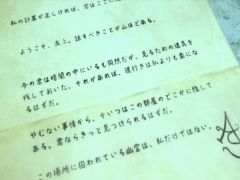 私の計算が正しければ、君はここに
ようこそ、友よ。話すべきことが山ほどある。
今の君は暗闇の中にいるも同然だが、見るための道具を
残しておいた。それがあれば、道行きは私よりも楽にな
るはずだ。
やむない事情から、そいつはこの部屋のどこかに隠して
ある。君ならきっと見つけられるはずだ。
この場所に囚われている幽霊は、私だけではない。